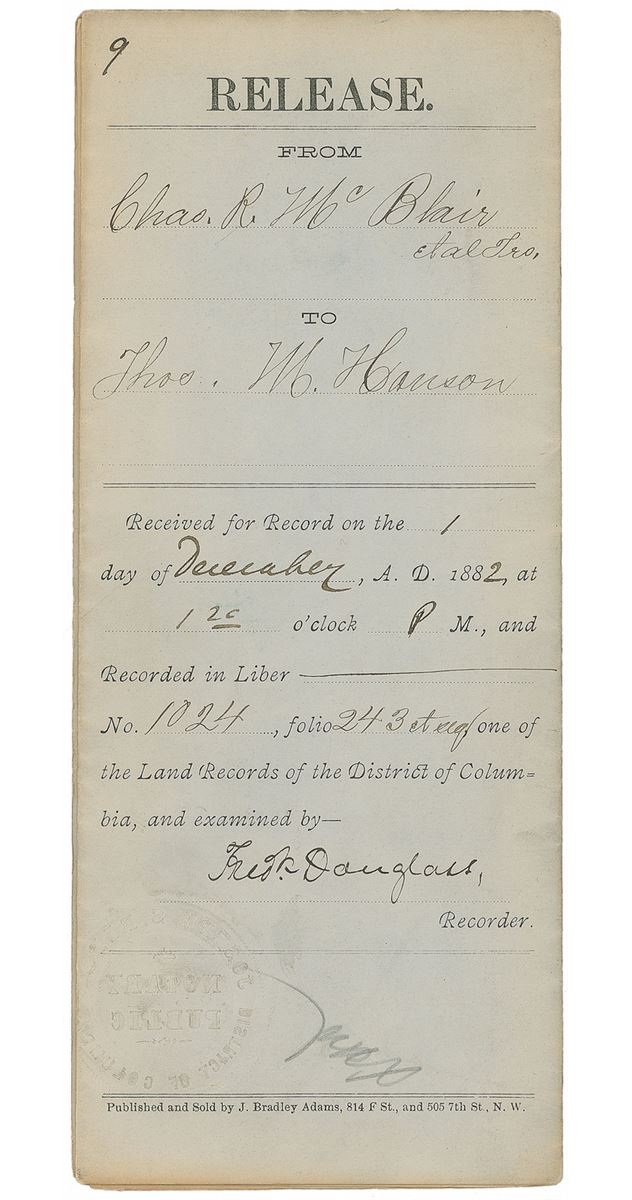 9
RELEASE.
FROM
Chas. R. Mc Blair
et al Trs.
TO
Thos. M. Hanson
Received for Record on the 1
day of December, A. D. 1882, at
1 20 o'clock P M., and
Recorded in Liber
No. 1024, folio 243 et seq one of
the Land Records of the District of Colum=
bia, and examined by—
Fredk Douglass,
Recorder.
NOTARY
PUBLIC
DISTRICT OF COLUMBIA
Published and Sold by J. Bradley Adams, 814 F St., and 505 7th St., N. W.